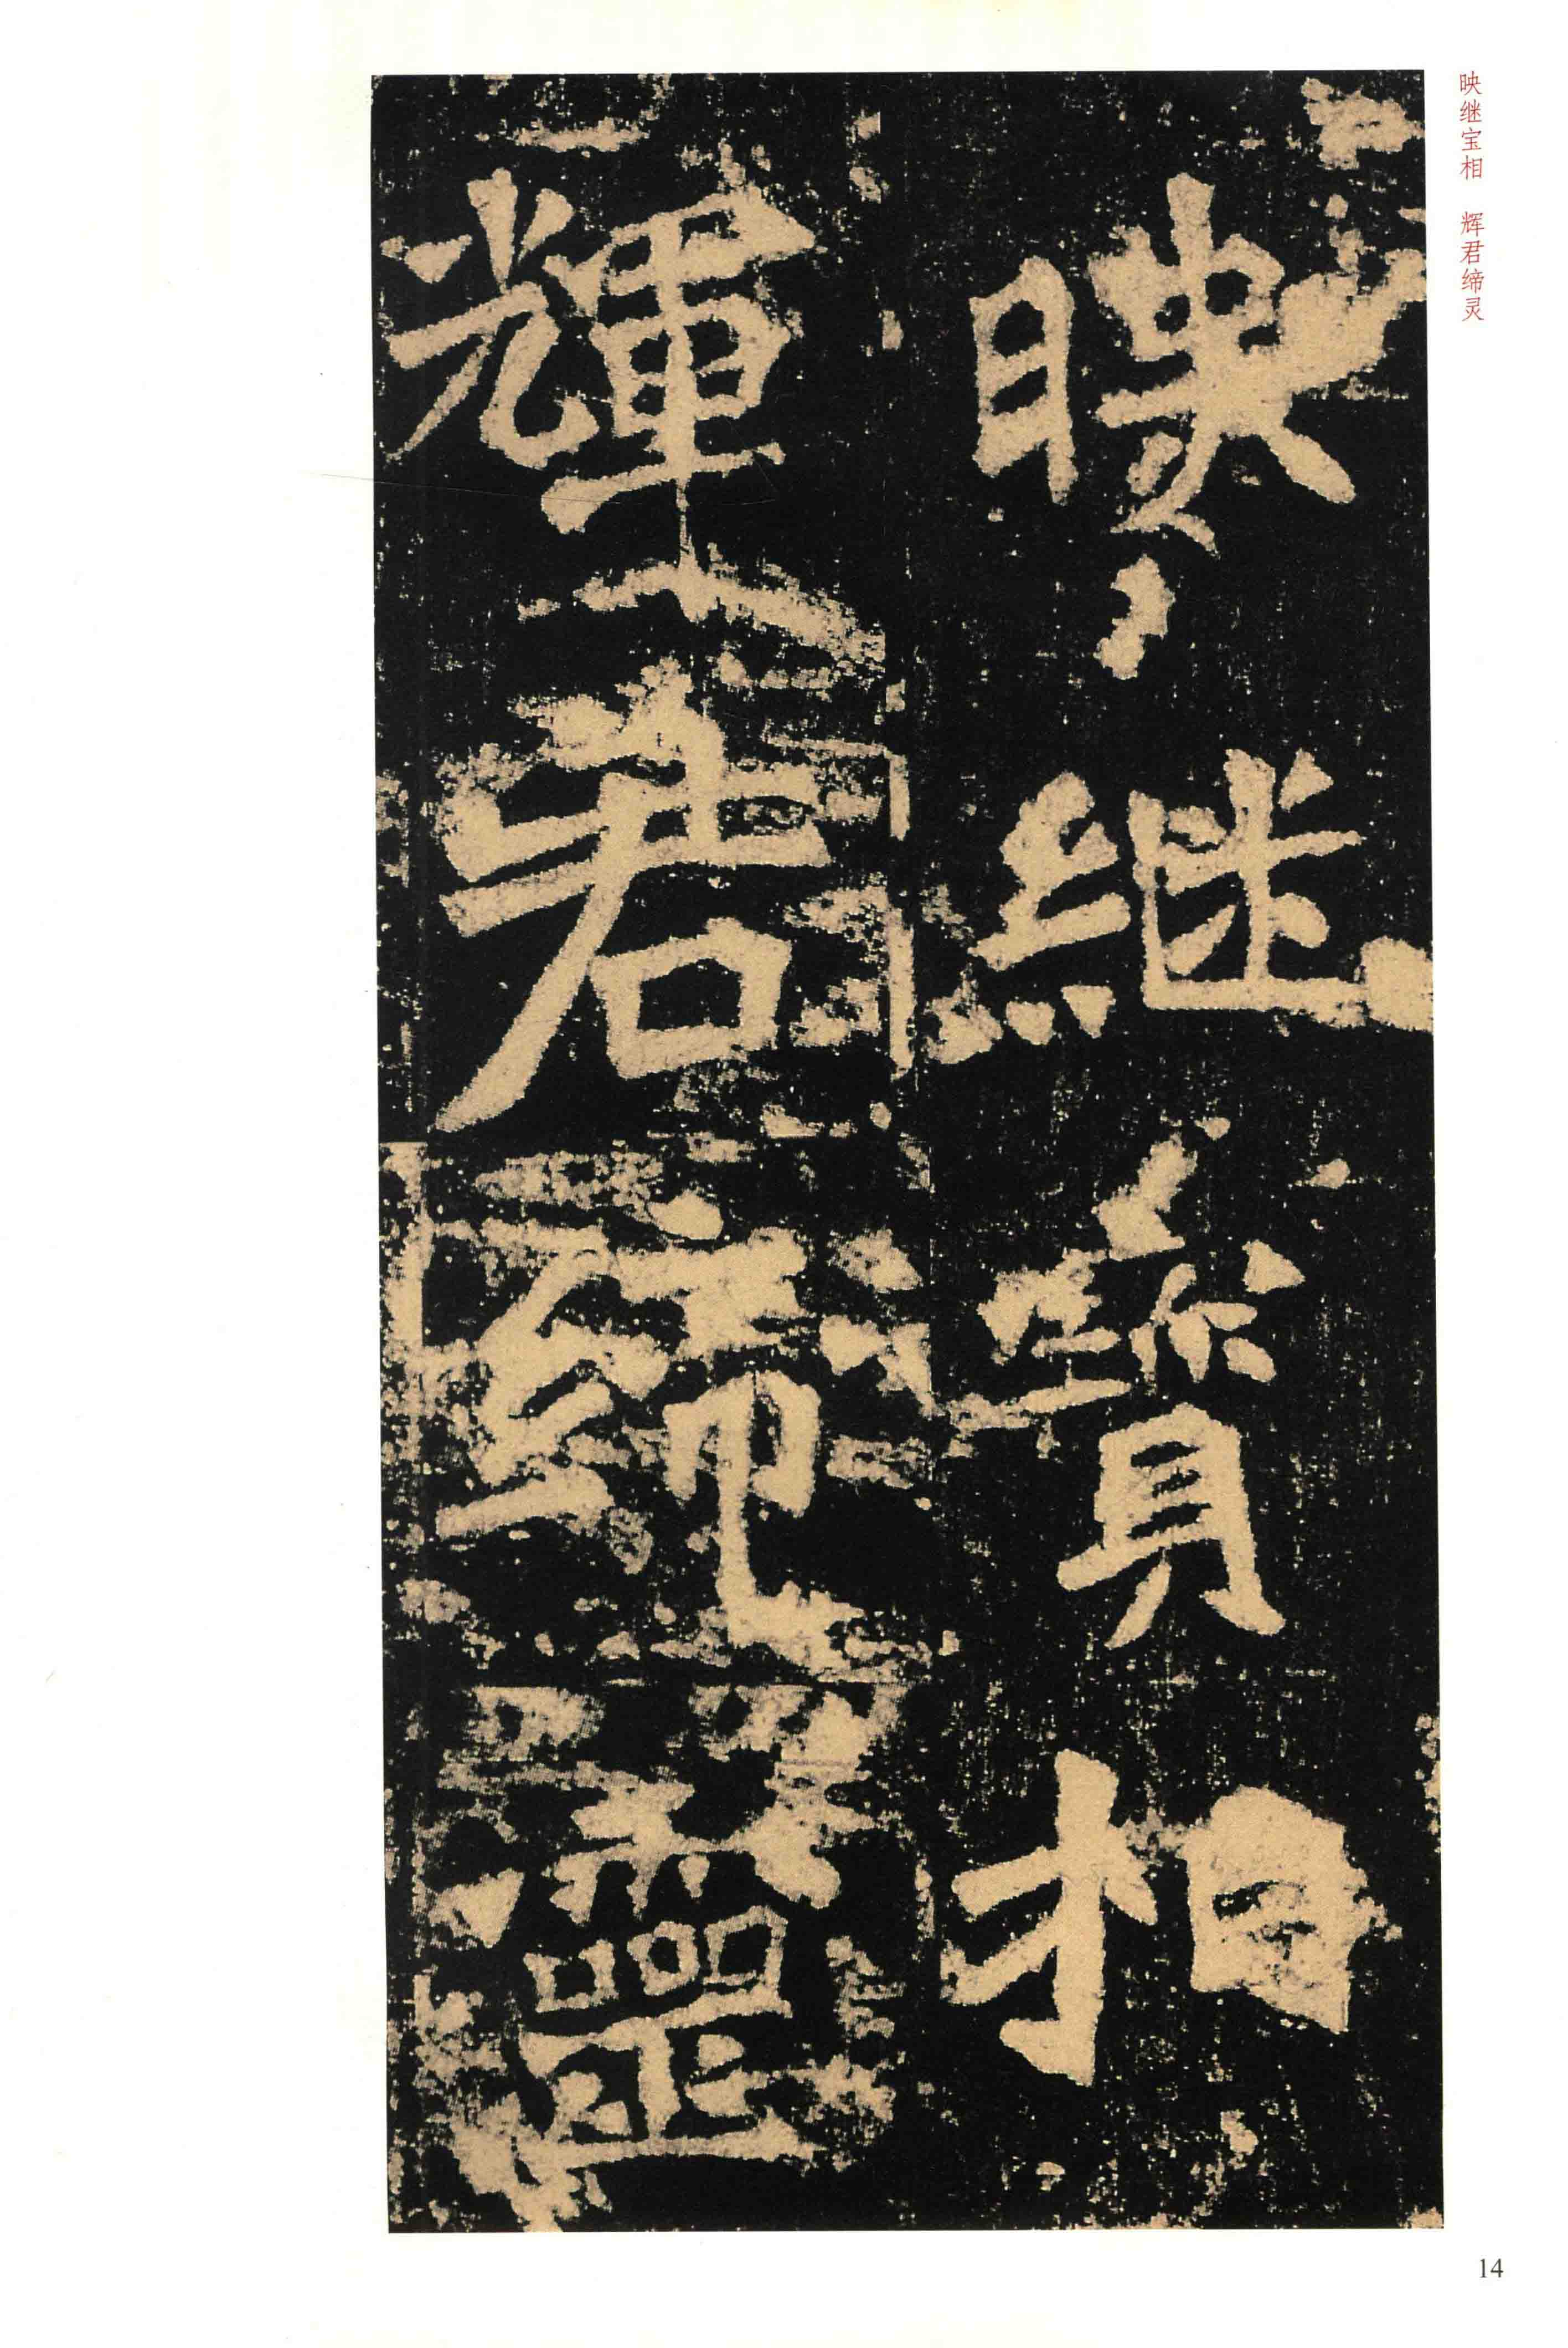 映继宝相 辉君缔灵
映継寳相
輝君締靈
14